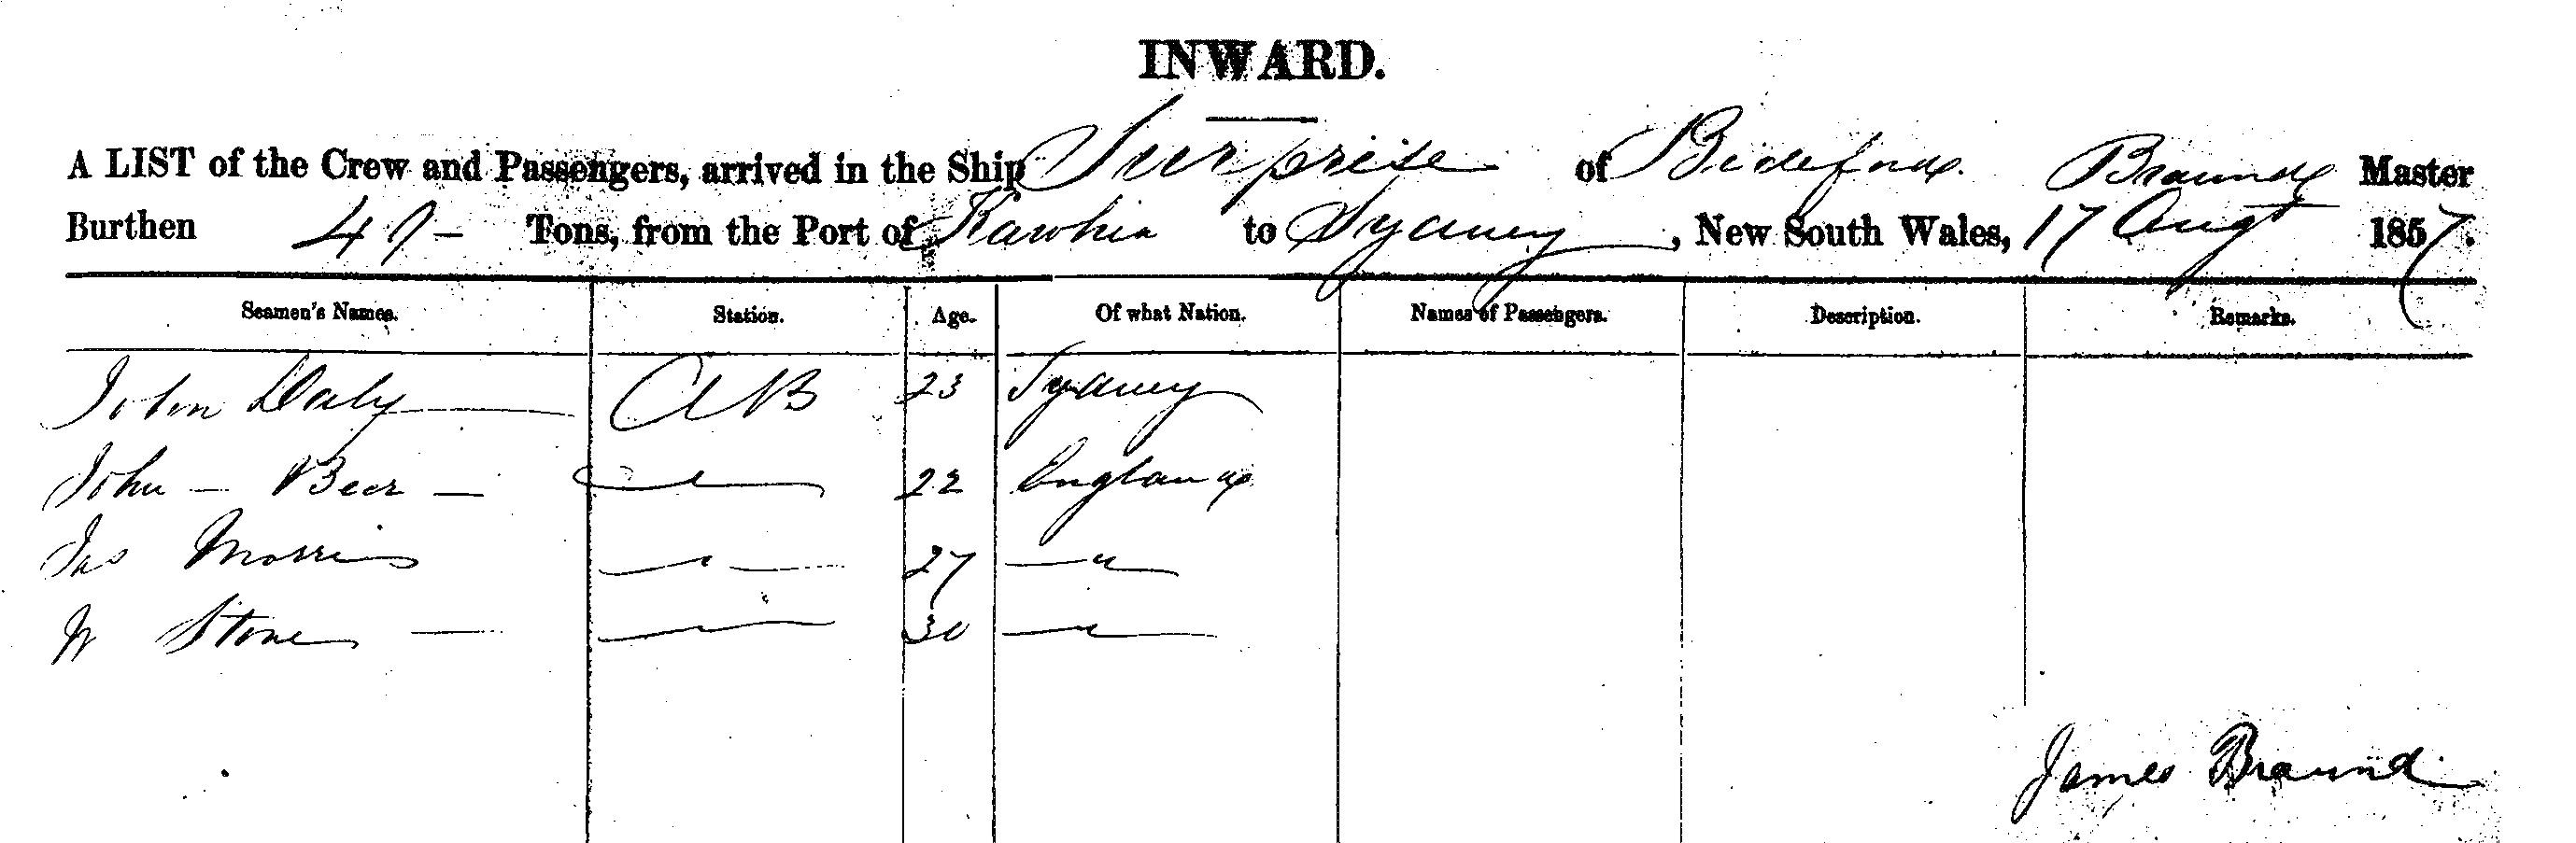 INWARD.
A LIST of the Crew and Passengers, arrived in the Ship Surprise of Bideford. Braund Master
Burthen 47 - Tons, from the Port of Kawhia to Sydney, New South Wales, 17 Augt 1857.
Seamen's Names. Station. Age. Of what Nation. Names of Passengers. Description. Remarks.
John Daly A B 23 Sydney
John - Beer - 22 England
Jas Morris 27 — " —
W Stone — 30 — " —
James Braund